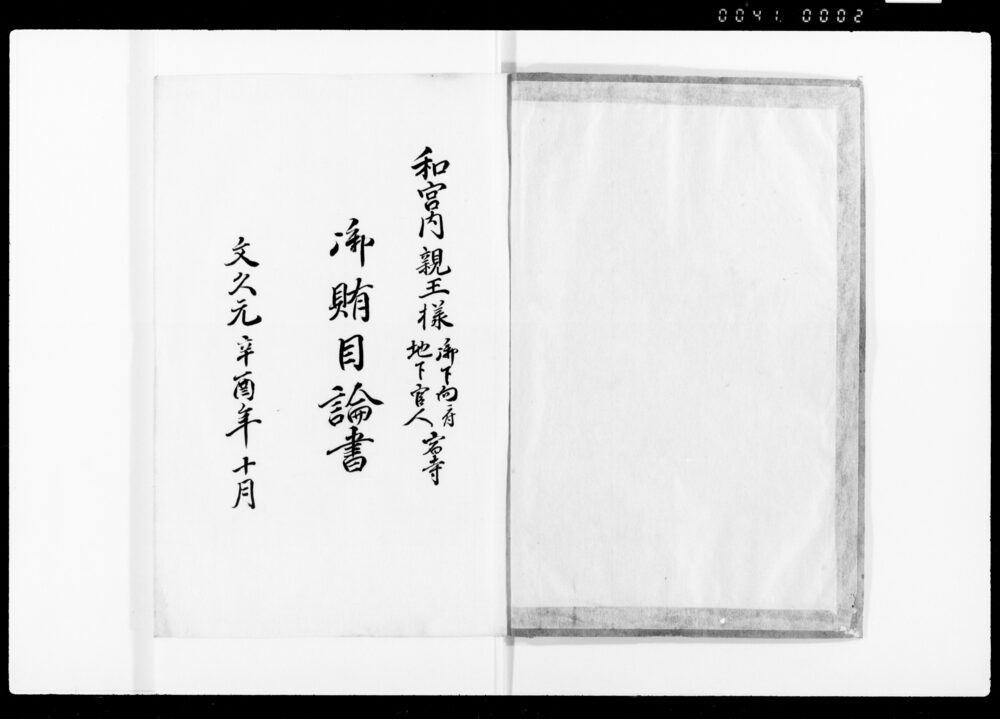 0041. 0002
和宮内親王様
御下向ニ付
地下官人
宿寺
御賄目論書
文久元辛酉年十月